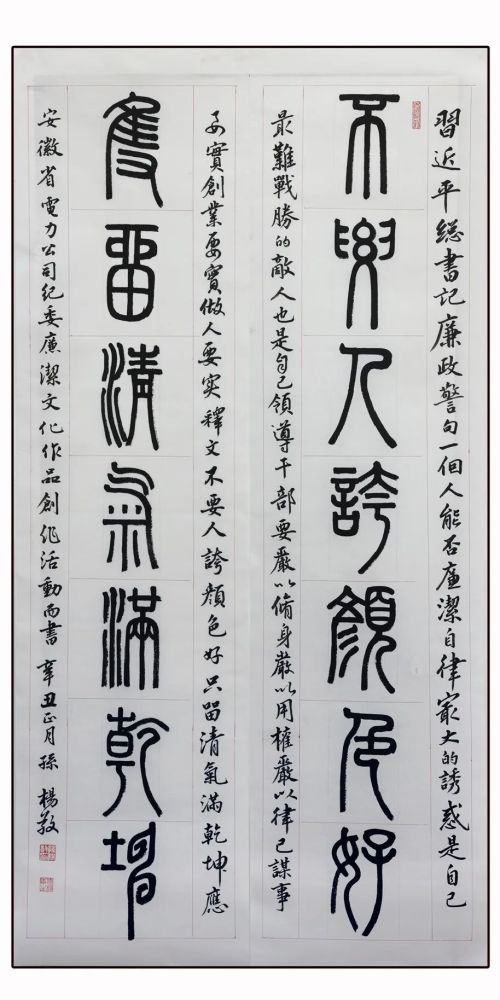 習近平総書記廉政警句一個人能否廉潔自律最大的誘惑是自己
不要人誇顏色好
最難戰勝的敵人也是自己領導干部要嚴以脩身嚴以用權嚴以律己謀事
要實創業要實做人要实釋文不要人誇顏色好只留清氣滿乾坤應
隻留清氣滿乾坤
安徽省電力公司紀委廉潔文化作品創作活動而書 辛丑正月孫 楊敬